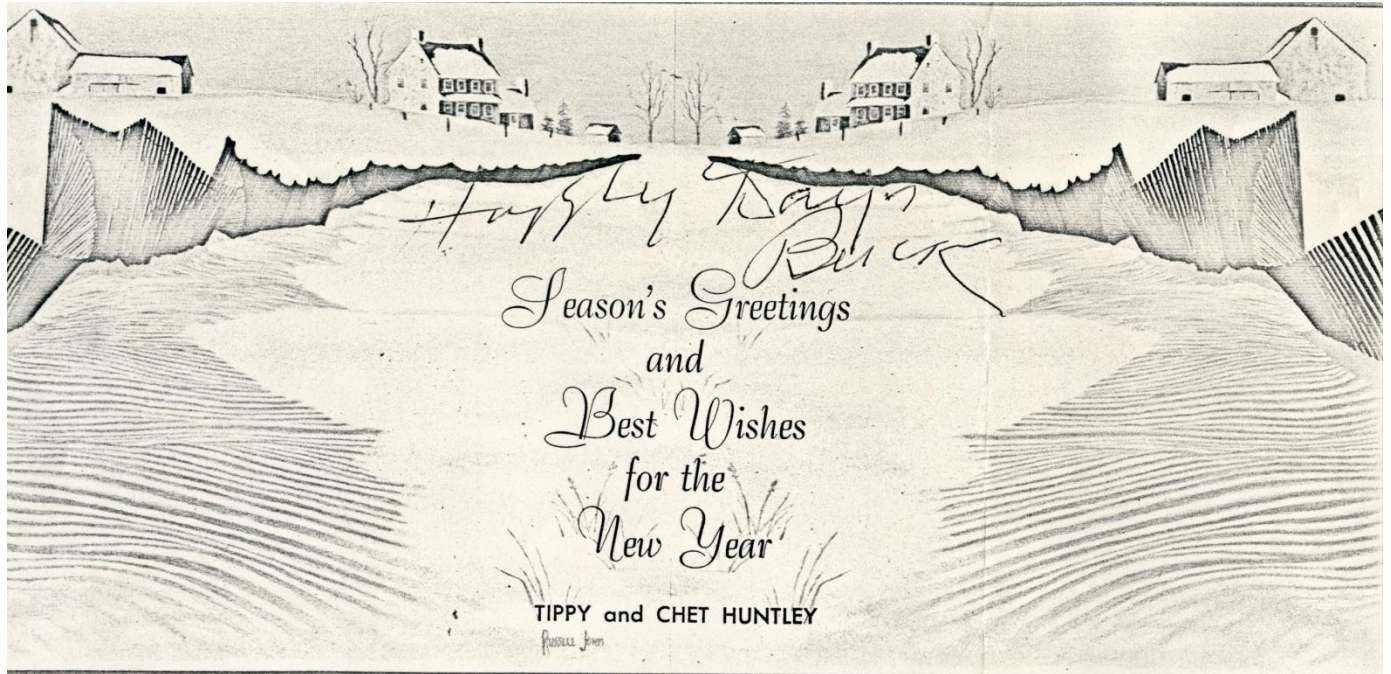 Happy Days
Buck
Season's Greetings
and
Best Wishes
for the
New Year
TIPPY and CHET HUNTLEY
Russell